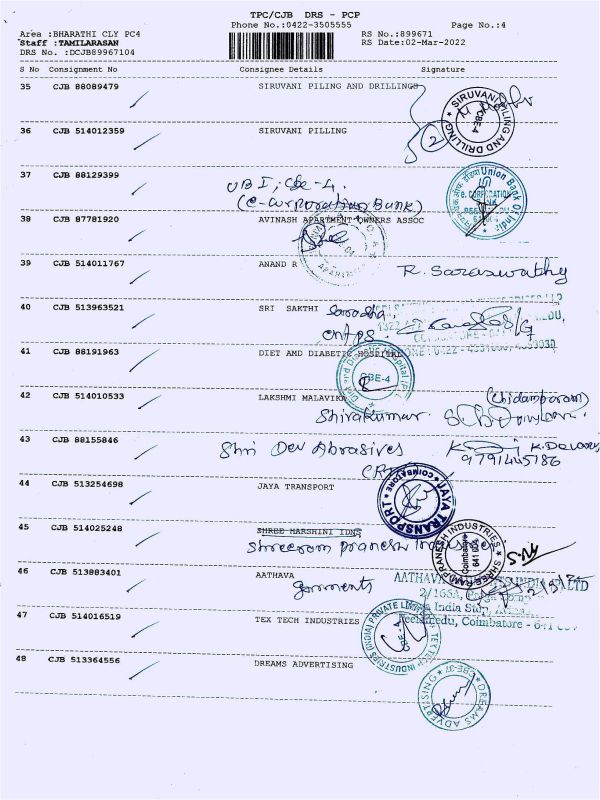 TPC/CJB DRS - PCP
Phone No.:0422-3505555 Page No.:4
Area :BHARATHI CLY PC4 RS No.:899671
Staff :TAMILARASAN RS Date:02-Mar-2022
DRS No. :DCJB89967104
S No Consignment No Consignee Details Signature
35 CJB 88089479 SIRUVANI PILING AND DRILLINGS
SIRUVANI PILING AND DRILLING
CBE-4
36 CJB 514012359 SIRUVANI PILLING
2
37 CJB 88129399 UBI, Cbe-4,
(e-corporation Bank)
Union Bank Of India
e. CORPORATION BANK
38 CJB 87781920 AVINASH APARTMENT OWNERS ASSOC
39 CJB 514011767 ANAND R R. Saraswathy
40 CJB 513963521 SRI SAKTHI
41 CJB 88191963 DIET AMD DIABETIC HOSPITAL
CBE-4
42 CJB 514010533 LAKSHMI MALAVIKA (Chidamparam)
Shivakumar.
43 CJB 88155846 Shri Dev Abrasives K. Devaraj
9791445186
44 CJB 513254698 JAYA TRANSPORT
JAYA TRANSPORT COIMBATORE
45 CJB 514025248 SHREE HARSHINI IDNG
Shreeram pranesh Industries
SHREE RAM PRANESH INDUSTRIES
Coimbatore 641 004
46 CJB 513883401 AATHAVA garments
47 CJB 514016519 TEX TECH INDUSTRIES
Coimbatore - 641
TEX TECH INDUSTRIES (INDIA) PRIVATE LIMITED
CBE-4
48 CJB 513364556 DREAMS ADVERTISING
DREAMS ADVERTISING CBE-37